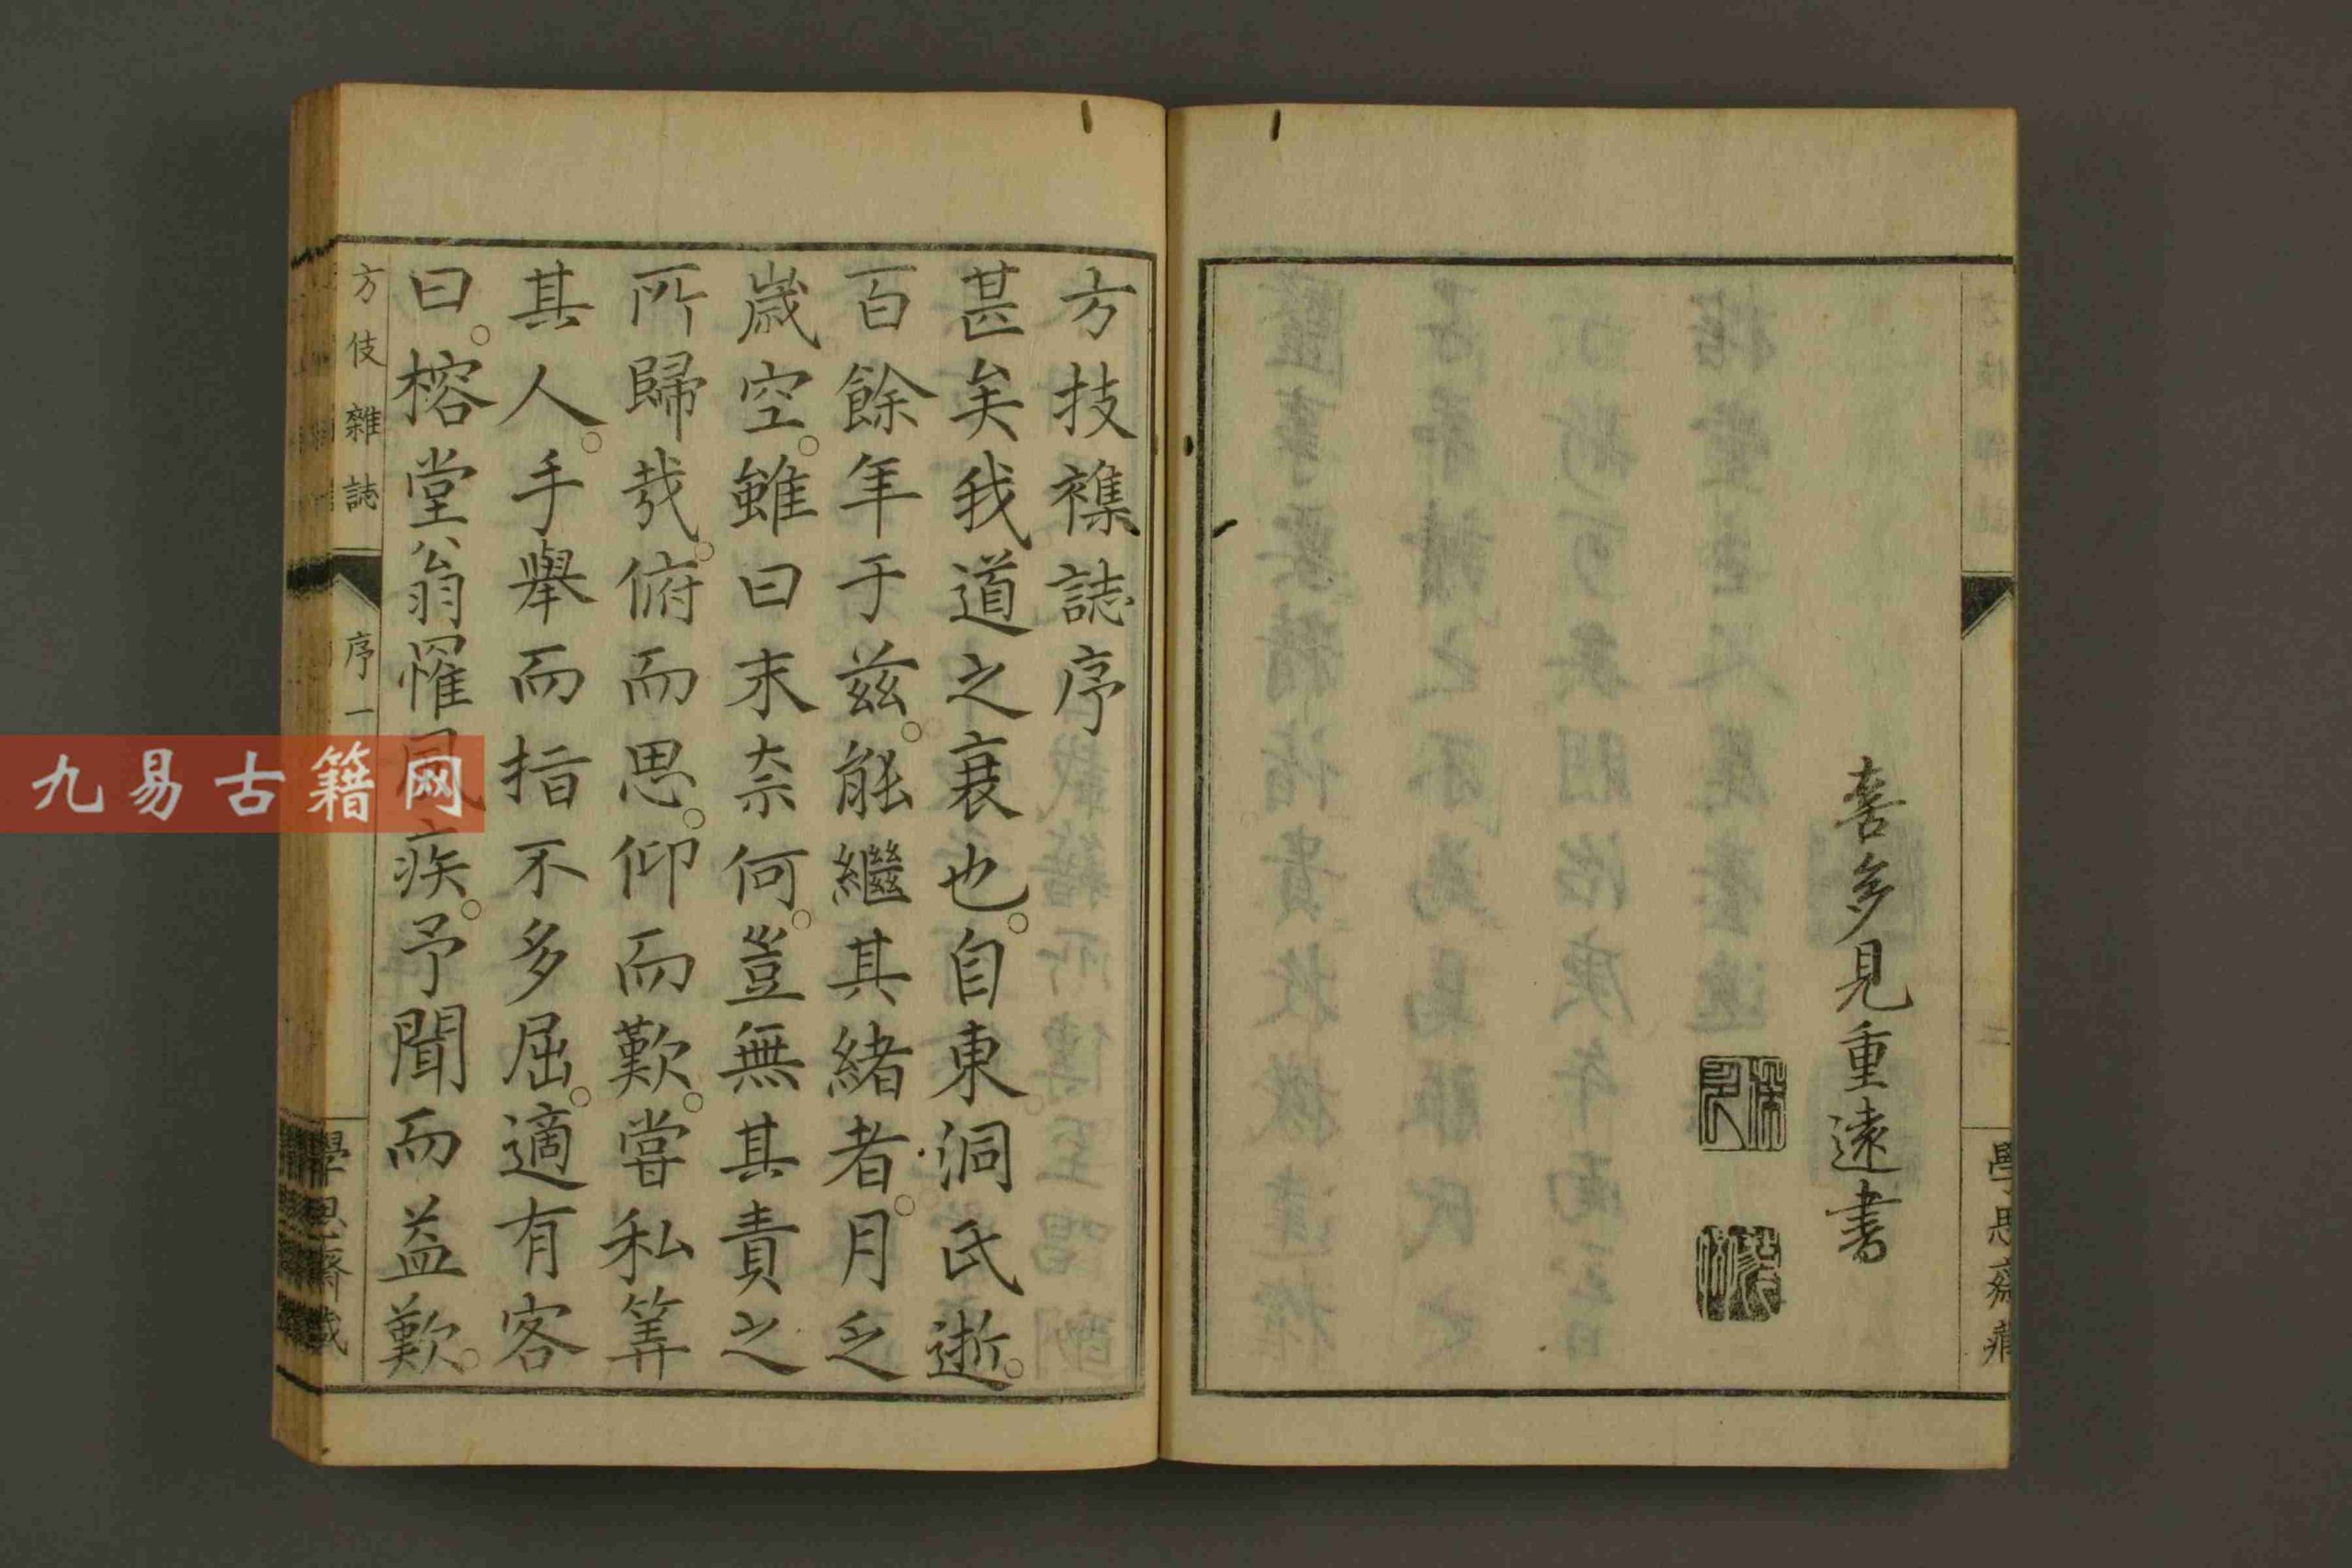 喜多見重遠書
學思齋藏
方技襍誌序
甚矣我道之衰也。自東洞氏逝。
百餘年于茲。能繼其緒者。月乏
歲空。雖曰末柰何。豈無其責之
所歸哉。俯而思。仰而歎。嘗私筭
其人。手舉而指不多屈。適有客
曰。榕堂翁罹風疾。予聞而益歎。
方伎雜誌 序一
學思齋藏
九易古籍网